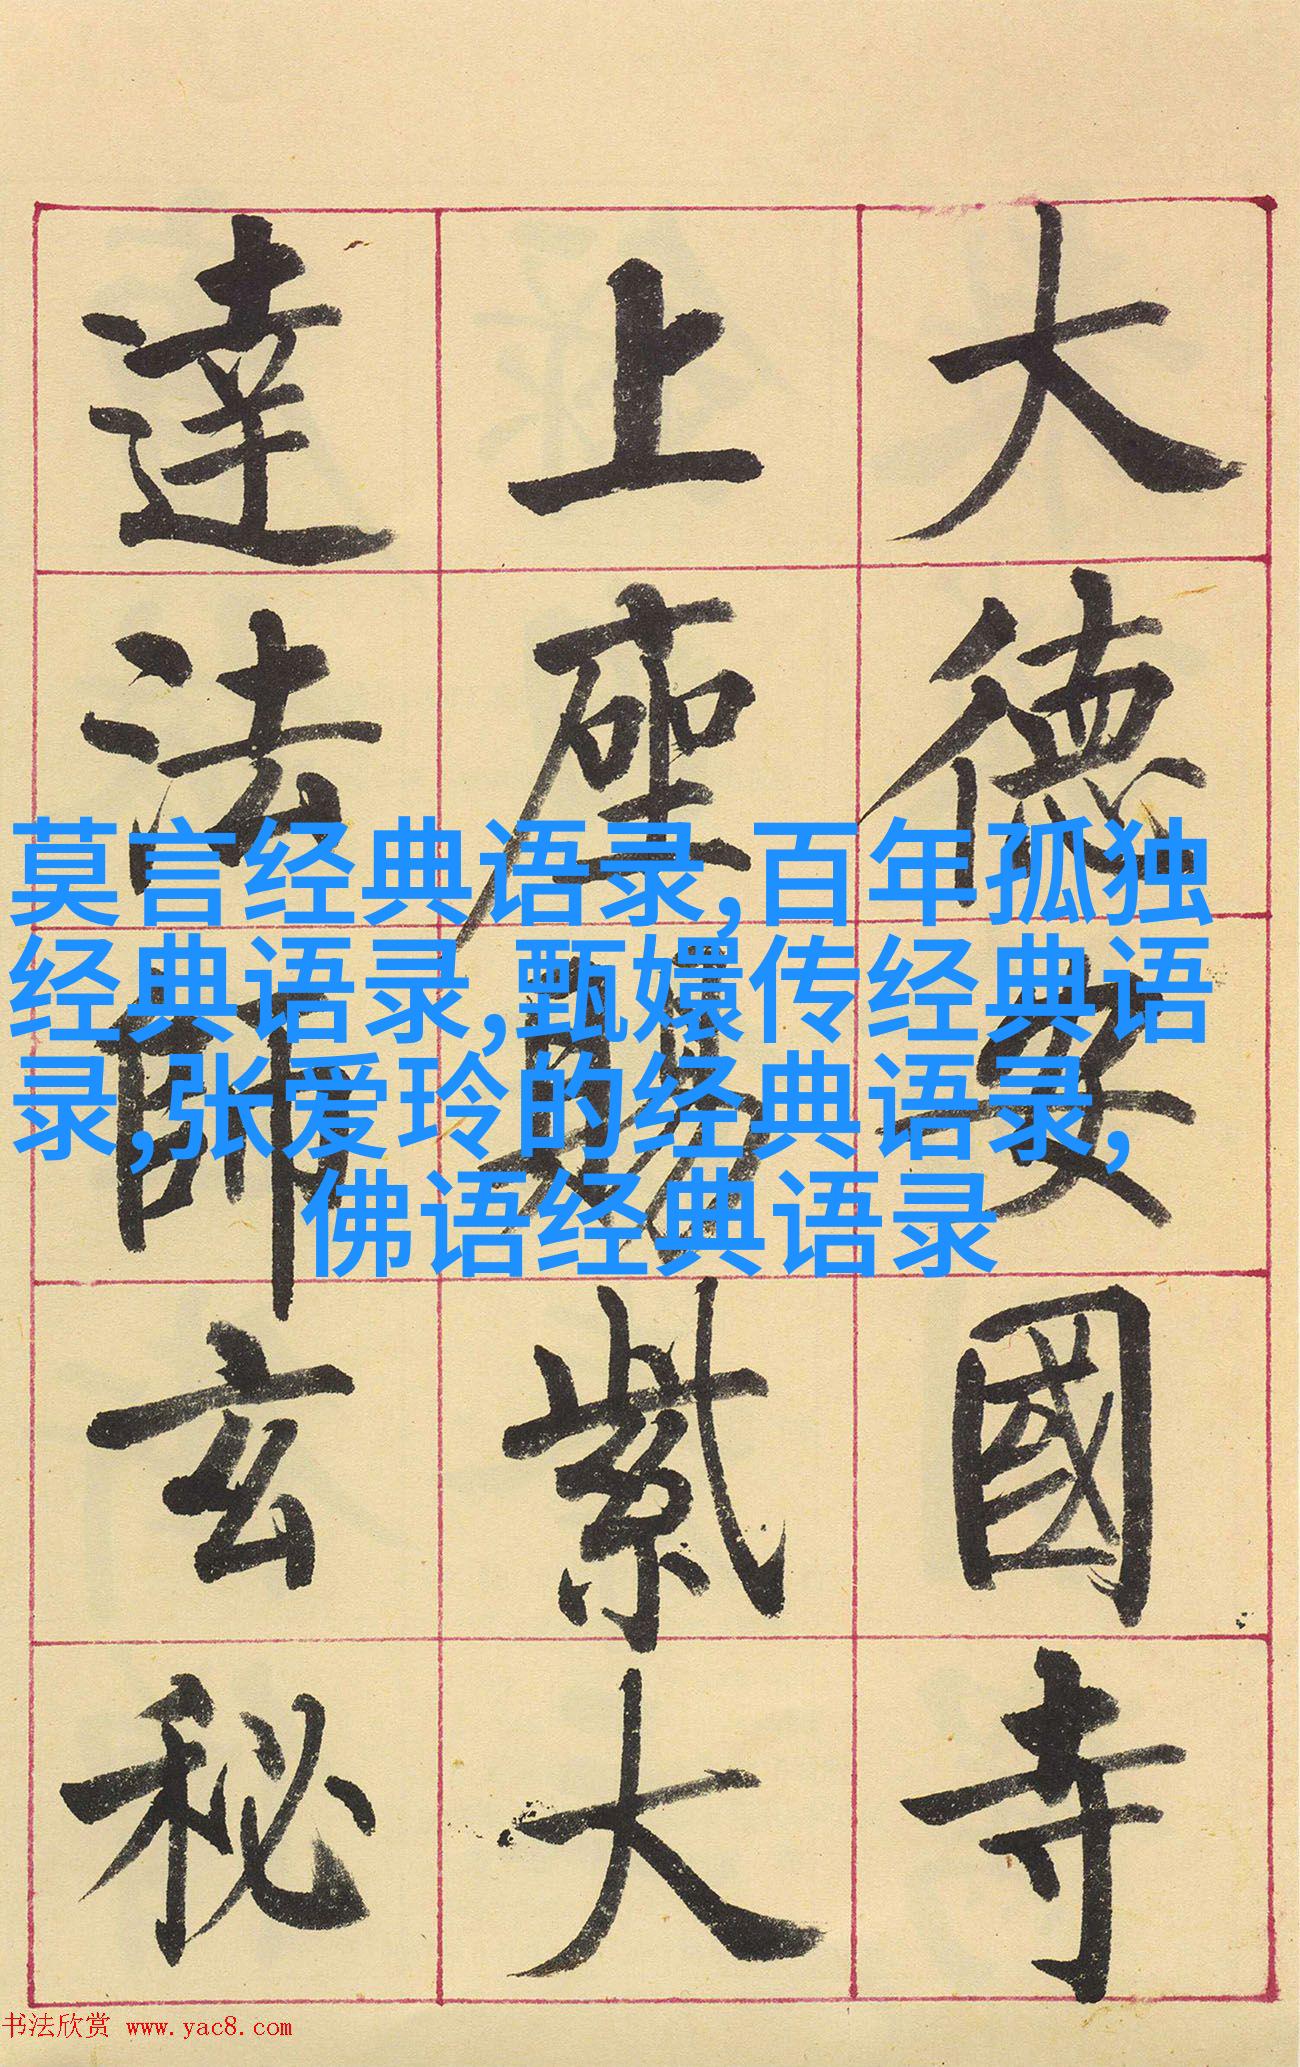 大德安國寺
上座賜紫大
達法師玄秘
莫言经典语录,百年孤独
经典语录,甄嬛传经典语
录,张爱玲的经典语录,
佛语经典语录
书法欣赏 www.yac8.com